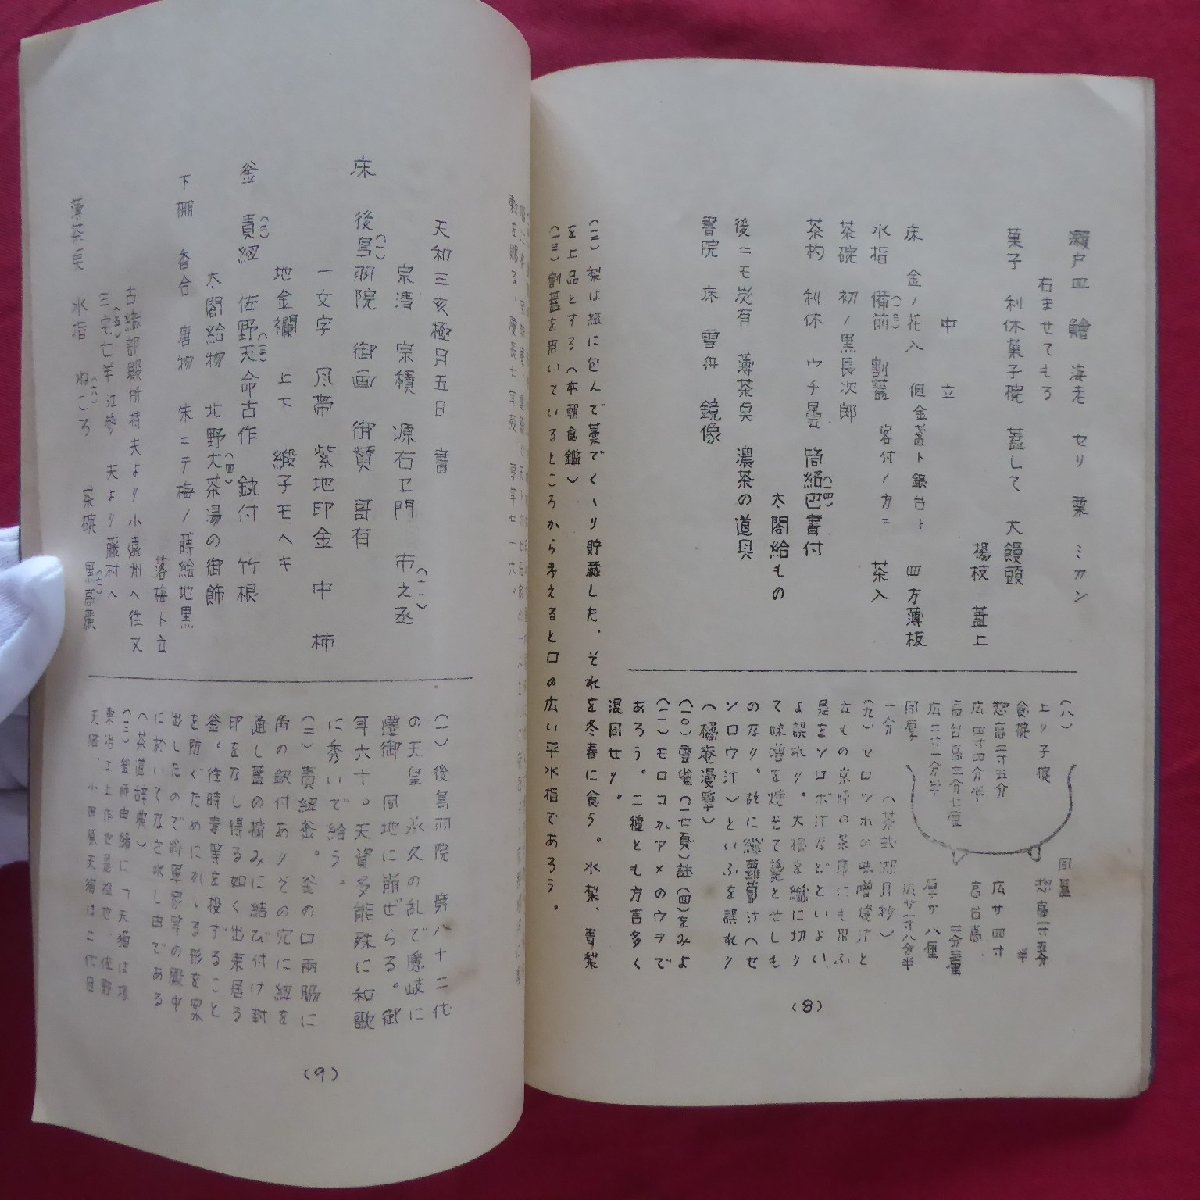 瀬戸皿 鱠 海老 セリ 栗 ミカン
右ませてもる
菓子 利休菓子椀 蓋して 大饅頭
楊枝 蓋上
中立
床 金ノ花入 但金蓋ト銀台ト 四方薄板
水指 備前 割蓋 客付ノカニ 茶入
茶碗 初ノ黒長次郎
茶杓 利休 ウチ曇 筒紙巴書付
太閤給もの
後ニモ炭有 薄茶臭 濃茶の道具
書院 床 雲舟 鏡像
(八)
上り子椀
食椀
惣高二寸五分
広四寸四分半
高台高二分七厘
広二寸一分半
同厚
一分 (茶式湖月抄)
同蓋
惣高一寸五分半
広サ四寸
高台高
三分厘
厚サ 八厘
広サ一寸八分半
(九)ヒロツホの味噌漬汁と
立もの京師の茶席にも思ふ
是をソロボ汁などといよい
よ誤れり。大根を繊に切り
て味噌を焼せて羹とせしも
のなり。故に繊蘿蔔汁(せ
ンロウ汁)といふを誤れり
(橘庵漫筆)
(一〇)雲雀(一七頁)註(四)をみよ
(一一)モロコカアメのウヲで
あろう。二種とも方言多く
混同せり。
(一二)梨は紙に包んで藁でくゝり貯蔵した。それを冬春に食う。水梨、青梨
を上品とする(本朝食鑑)
(一三)割蓋を用いているところから考えると口の広い平水指であろう。
(8)
天和三亥極月五日 書
宗清 宗積 源右ヱ門 市之丞
床 後鳥羽院 御画 御賛 哥有
一文字 風帯 紫地印金 中 柿
地金襴 上下 緞子モヘキ
釜 責紐 佐野天命古作 鋭付 竹根
太閤給物 北野大茶湯の御飾
下棚 香合 唐物 朱ニテ梅ノ蒔絵地黒
落梅ト立
古織部殿所持夫より小遠州へ往又
三宅亡羊江参 夫より藤村へ
薄茶臭 水指 ぬころ 茶碗 黒高麗
(一)後鳥羽院 第八十二代
の天皇 承久の乱で隠岐に
遷御 同地に崩ぜらる。御
年六十。天資多能殊に和歌
に秀いで給う。
(二)責紐釜。釜の口両脇に
角の鐶付ありその穴に紐を
通し蓋の摘みに結び付け封
印をなし得る如く出来居る
釜。往時毒薬を投ずること
を防ぐためにかしる形を案
出したので将軍家等の殿中
に於いてなど水し由である
(茶道辞典)
(三)釜師由緒に「天猫は
東治は上作也是其地佐野
天猫、小田原天猫は二代目
(9)